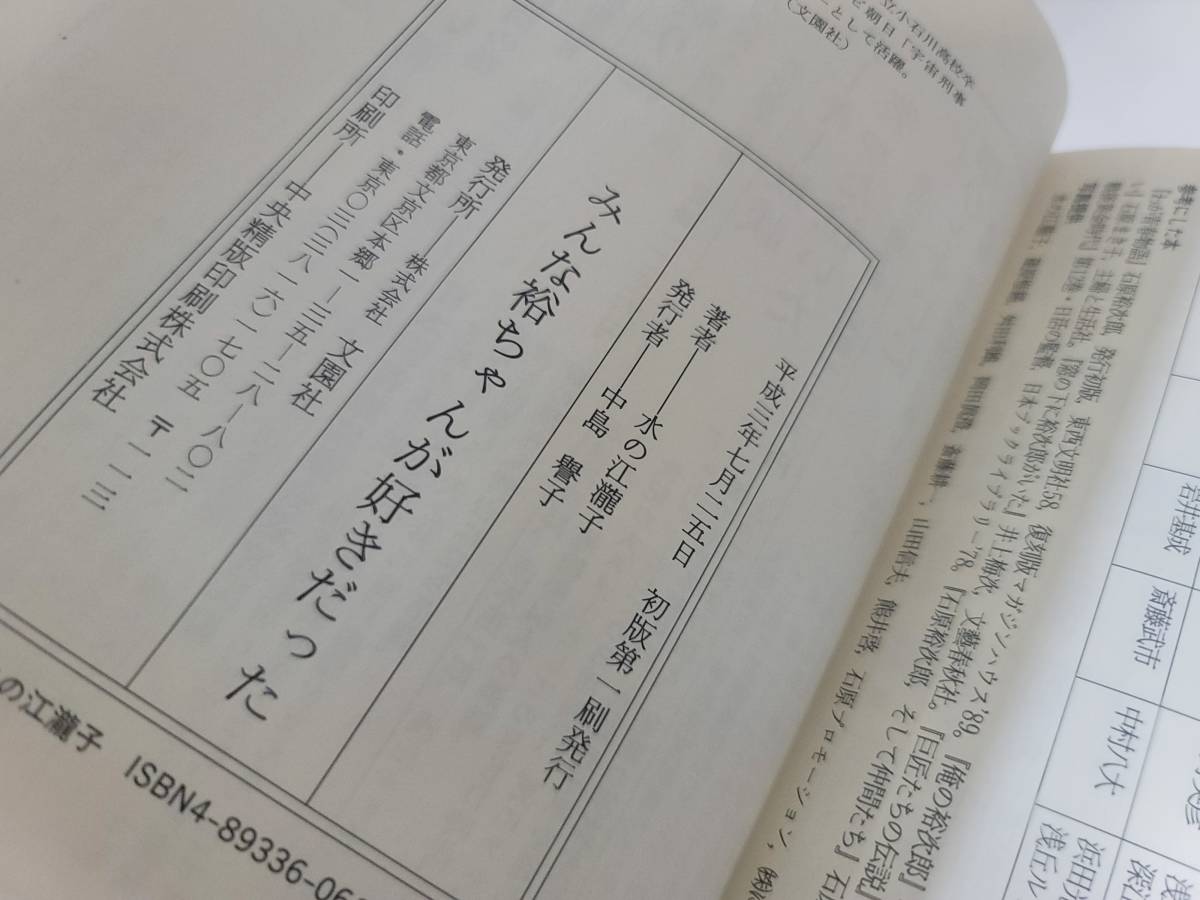 立小石川高校卒
朝日「宇宙刑事
ーとして活躍。
(文園社)
平成三年七月二五日 初版第一刷発行
著者――水の江瀧子
発行者――中島 譽子
みんな裕ちゃんが好きだった
発行所――株式会社 文園社
東京都文京区本郷一―三五―二八―八〇二
電話・東京〇三(三八一六)一七〇五 〒一一三
印刷所――中央精版印刷株式会社
の江瀧子 ISBN4-89336-06
参考にした本
『わが青春物語』石原裕次郎、発行初版、東西文明社58、復刻版マガジンハウス'89。『俺の裕次郎』
主婦と生活社。『窓の下に裕次郎がいた』井上梅次、文藝春秋社。『巨匠たちの伝説』
日本ブックライブラリー'78。『石原裕次郎、そして仲間たち』石
山田信夫、熊井啓、石原プロモーション、
若井基成
斎藤武市
中村八大
浜田光
浅丘ル